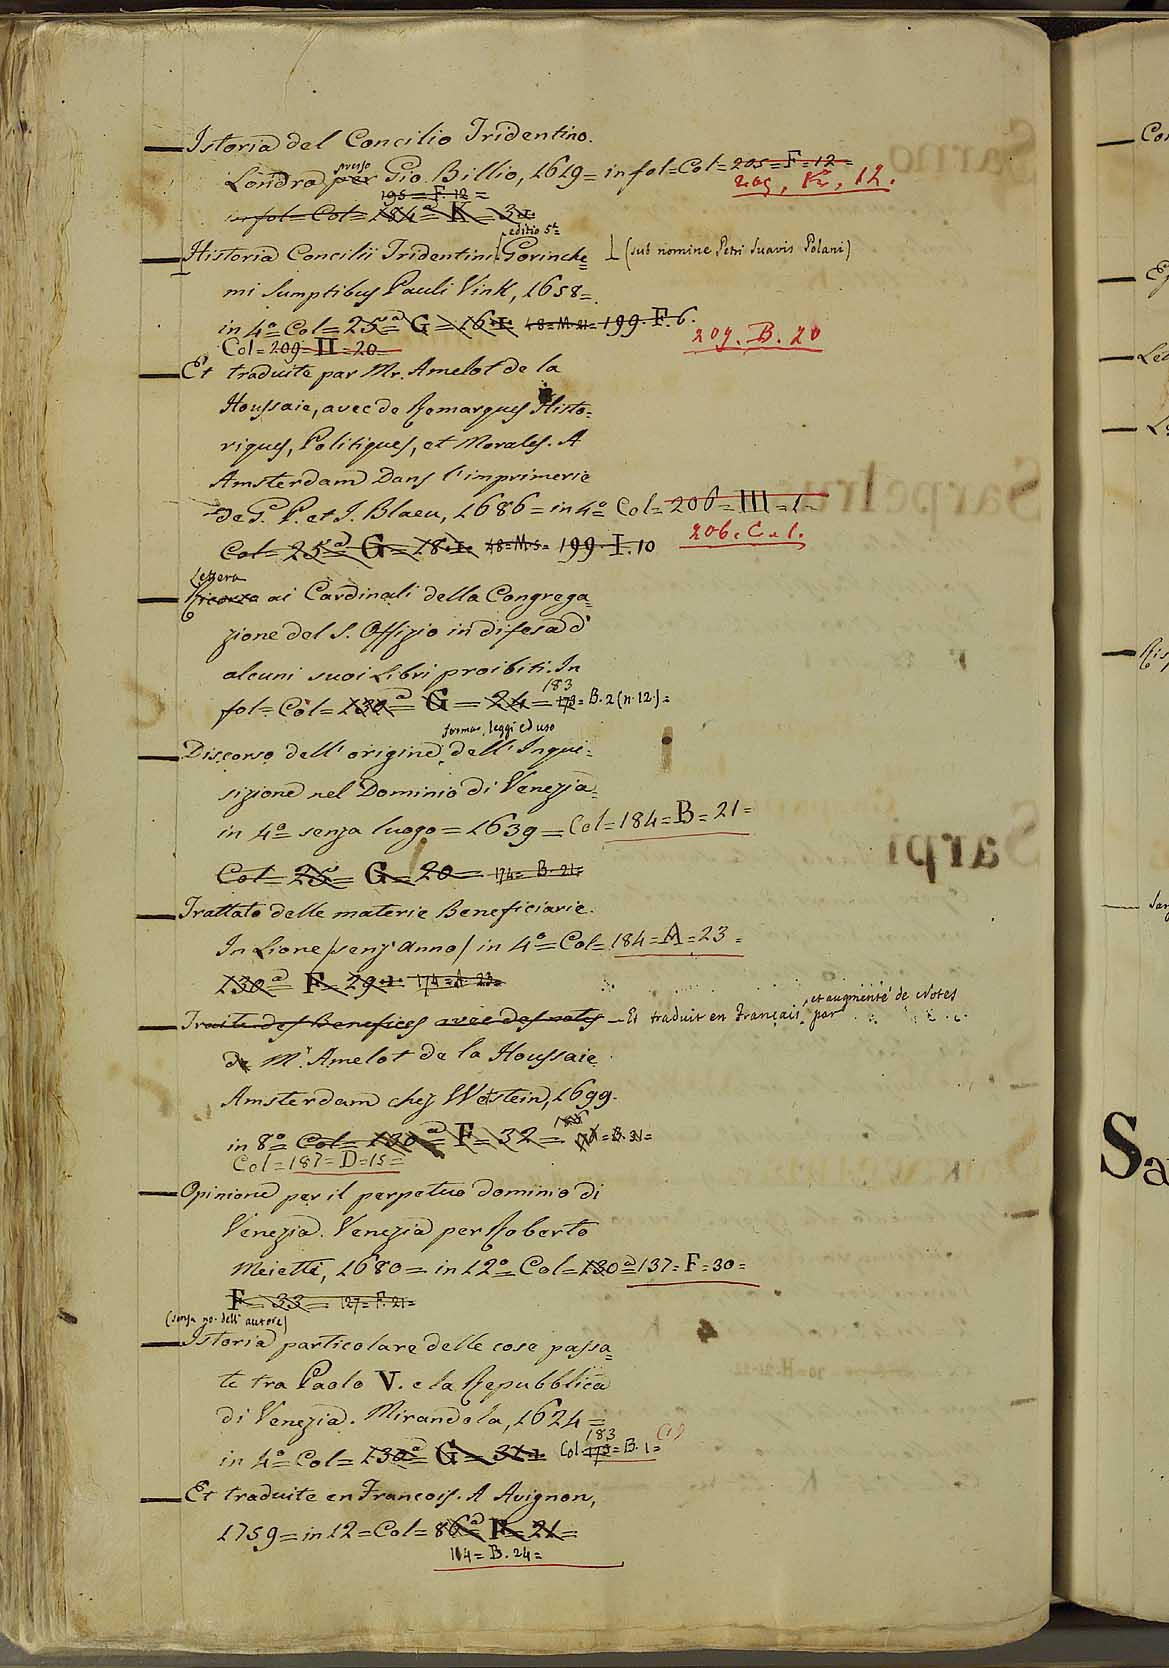 Istoria del Concilio Tridentino.
Londra per presso Gio. Billio, 1619= in fol=Col=205=F=12=
209, 12.
195=F.12=
in fol=Col=184ª K=3
Historia Concilii Tridentini editio 5ª Gorinche= (sub nomine Petri Suavis Polani)
mi Sumptibus Pauli Vink, 1658=
in 4º Col=25ª G=16 48=M.21=199.F.6.
209. B. 20
Col=209=II=20
Et traduite par Mr. Amelot de la
Houssaie, avec de Remarques Histo=
riques, Politiques, et Morales. A
Amsterdam Dans l'imprimerie
de G. P. et J. Blaeu, 1686=in 4º Col=206=III=1=
206. C. 1.
Col=25ª G=18 48=M.5= 199.I.10
Lettera
ai Cardinali della Congrega=
zione del S. Offizio in difesa d'
alcuni suoi Libri proibiti. In
fol=Col=130ª G=24= 183 173=B.2(n.12.)=
forma, leggi ed uso
Discorso dell'origine, dell'Inqui=
sizione nel Dominio di Venezia
in 4º senza luogo=1639=Col=184=B=21=
Col=25= G=20= 174= B.21=
Trattato delle materie Beneficiarie.
In Lione /senz'anno/ in 4º=Col=184=A=23=
130ª F=29 174=A 23=
Traite des Benefices avec des notes Et traduit en Français, et augmenté de Notes par
de Mr. Amelot de la Houssaie
Amsterdam chez Wetstein, 1699.
in 8º Col=130ª F=32= =B.31=
Col=187=D=15=
Opinione per il perpetuo dominio di
Venezia. Venezia per Roberto
Meietti, 1680=in 12º Col=130ª 137=F=30=
F=33= 127=F.21=
(senza no. dell'autore)
Istoria particolare delle cose passa=
te tra Paolo V. e la Repubblica
di Venezia. Mirandola, 1624=
in 4º Col=130ª G=31 Col 183 173=B.1= (1)
Et traduite en Francois. A Avignon,
1759=in 12=Col=86ª F=21=
104=B.24=